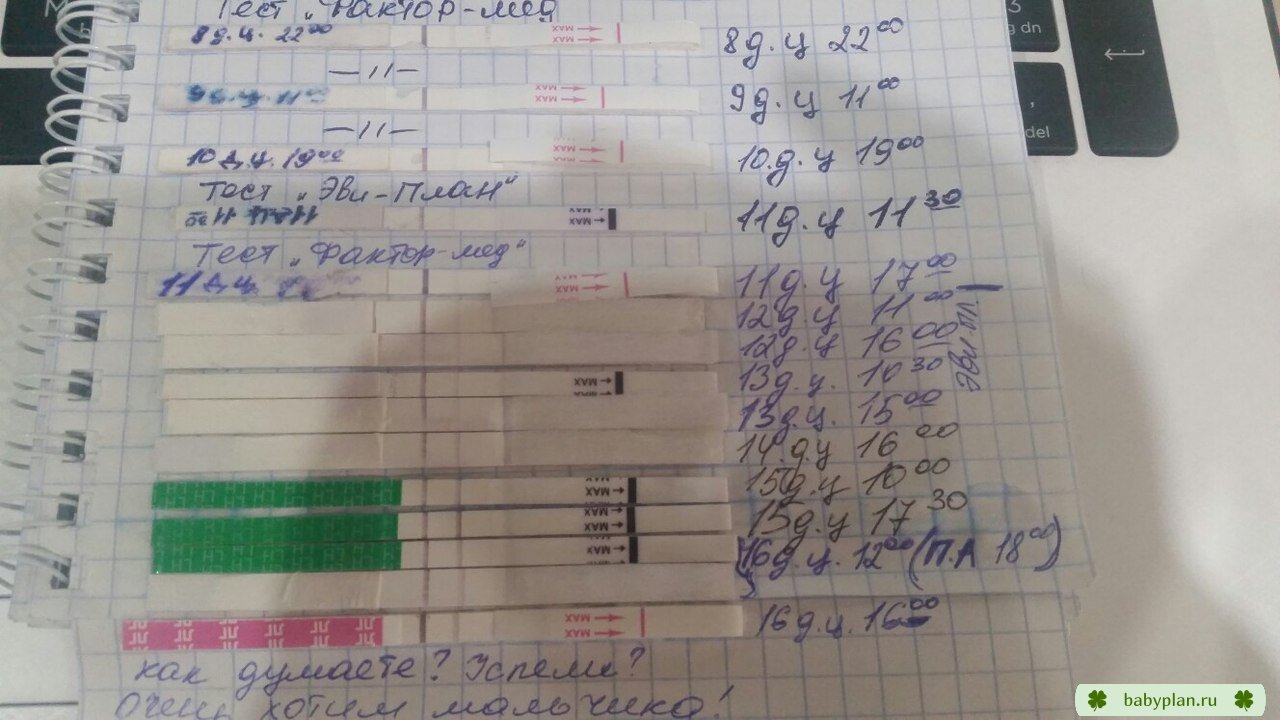 Тест „Фактор-мед
8 д.ц. 22⁰⁰ MAX MAX 8 д.ц 22⁰⁰
—〃—
MAX MAX 9 д.ц 11⁰⁰
—〃—
10 д.ц. 19⁰⁰ MAX 10.д.ц 19⁰⁰
Тест „Эви-План“
MAX 11 д.ц 11³⁰
Тест „Фактор-мед“
11 д.ц. MAX MAX 11 д.ц 17⁰⁰
12 д.ц 11⁰⁰
12 д.ц 16⁰⁰
MAX 13 д.ц. 10³⁰
Эви пл.
13 д.ц. 15⁰⁰
14.д.ц 16⁰⁰
MAX 15 д.ц 10⁰⁰
MAX 15 д.ц 17³⁰
MAX 16 д.ц. 12⁰⁰ (П.А 18⁰⁰)
MAX MAX 16 д.ц. 16⁰⁰
как думаете? Успели?
очень хотим мальчика!
3
gn dn
del
babyplan.ru